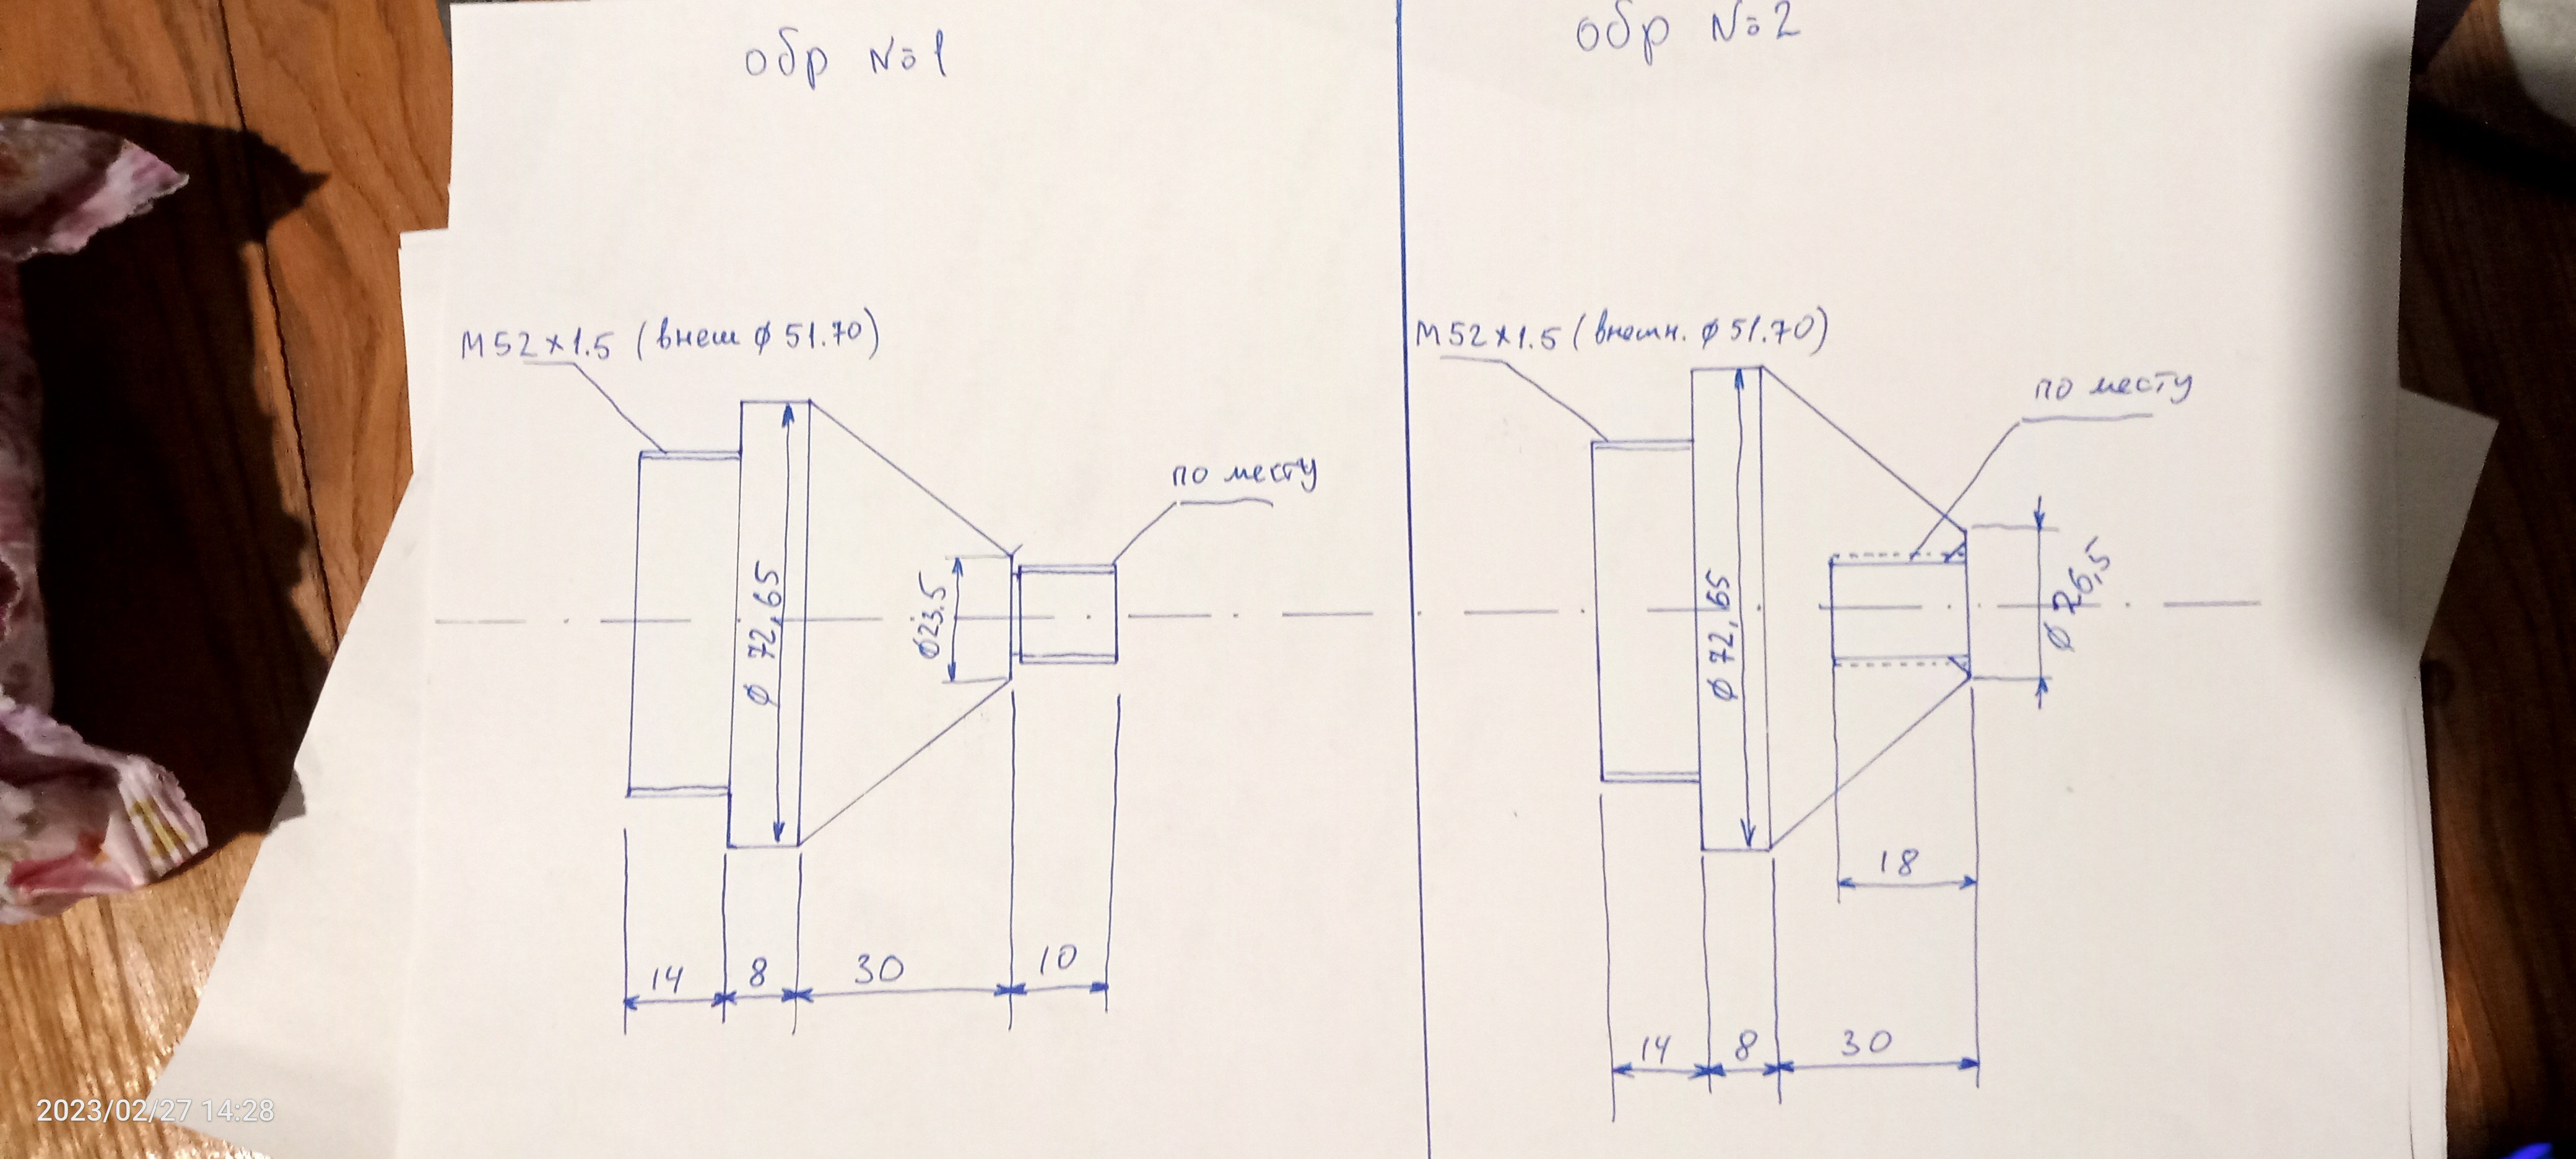 обр №1
М52×1.5 (внеш ϕ 51.70)
по месту
ϕ 72,65
ϕ23.5
14
8
30
10
обр №2
М52×1.5 (внешн. ϕ 51.70)
по месту
ϕ 72,65
ϕ 26,5
18
14
8
30
2023/02/27 14:28